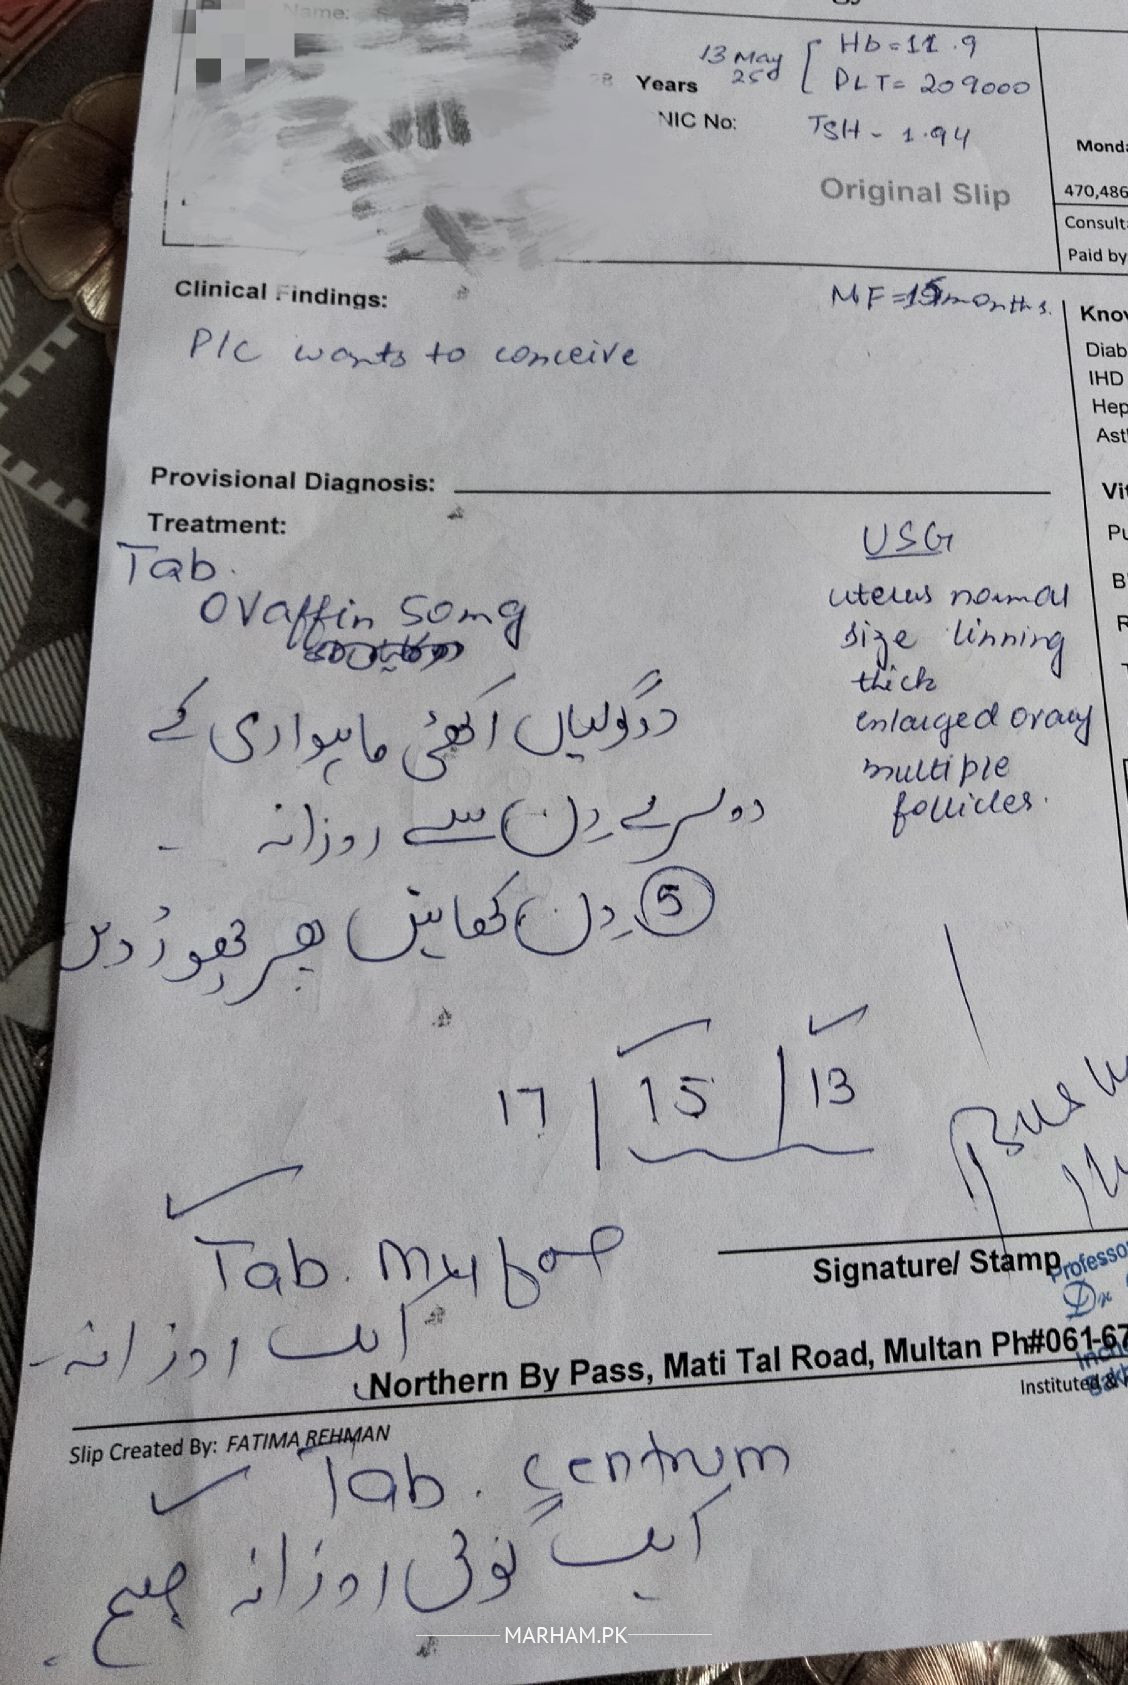 Name:
13 May
25
Hb=11.9
PLT= 209000
Years
NIC No:
TSH - 1.94
Original Slip
Monda
470,486
Consulta
Paid by
Clinical Findings:
MF=15months.
P/C wants to conceive
Know
Diab
IHD
Hep
Ast
Provisional Diagnosis:
Treatment:
Vit
Pu
B
R
Tab.
Ovaffin 50mg
USG
uterus normal
size linning
thick
enlarged ovary
multiple
follicles.
دو گولیاں اکھٹی ماہواری کے
دوسرے دن سے روزانہ
5 دن کھائیں پھر چھوڑ دیں
17 / 15 / 13
Signature/ Stamp
Professor
Dr
Tab.
ایک روزانہ -
Northern By Pass, Mati Tal Road, Multan Ph#061-67
Instituted &
Slip Created By: FATIMA REHMAN
Tab. Centrum
ایک گولی روزانہ صبح
MARHAM.PK